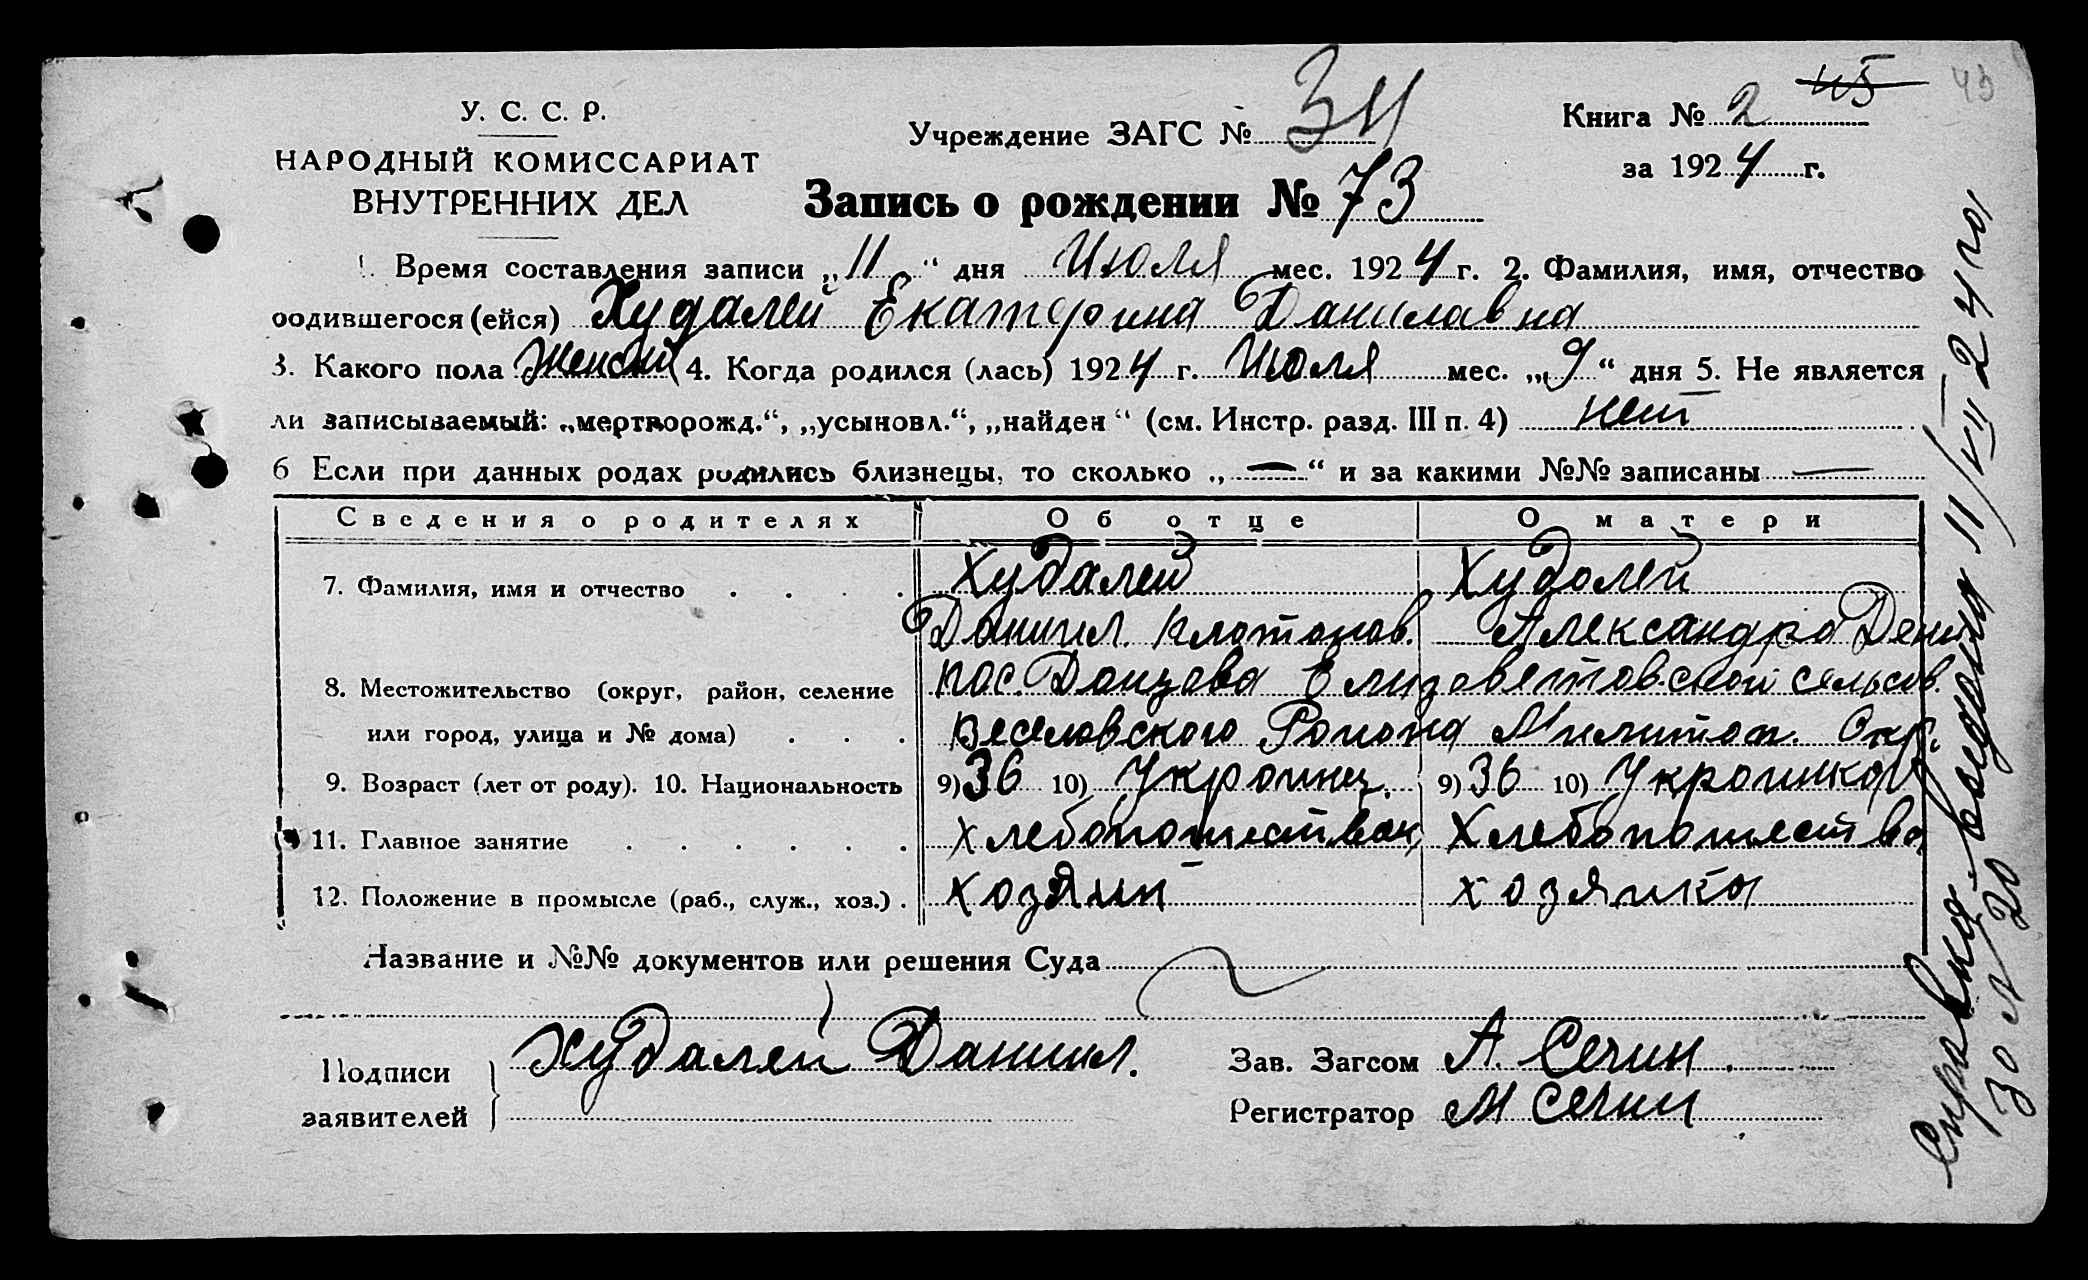 У. С. С. Р.
НАРОДНЫЙ КОМИССАРИАТ
ВНУТРЕННИХ ДЕЛ
Учреждение ЗАГС № 34
Книга № 2 45 43
за 1924 г.
Запись о рождении № 73
1. Время составления записи „11“ дня Июля мес. 1924 г. 2. Фамилия, имя, отчество
родившегося (ейся) Худалей Екатерина Данилавна
3. Какого пола Женский 4. Когда родился (лась) 1924 г. Июля мес. „9“ дня 5. Не является
ли записываемый: „мертворожд.“, „усыновл.“, „найден“ (см. Инстр. разд. III п. 4) нет
6 Если при данных родах родились близнецы, то сколько „—“ и за какими №№ записаны —
Сведения о родителях Об отце О матери
7. Фамилия, имя и отчество Худалей Худолей
Даниил Платонов. Александра Дени
8. Местожительство (округ, район, селение пос. Елизаветовской сельсов.
или город, улица и № дома) Веселовского Района Милитоп. Окр.
9. Возраст (лет от роду). 10. Национальность 9) 36 10) Украинец. 9) 36 10) Украинка
11. Главное занятие Хлебопошество
12. Положение в промысле (раб., служ., хоз.) хозяин хозяйка
Название и №№ документов или решения Суда
Подписи
заявителей
Худалей Даниил.
Зав. Загсом А. Сечин.
Регистратор М Сечин
Справка выдана 11/VII 24 года
за № 20